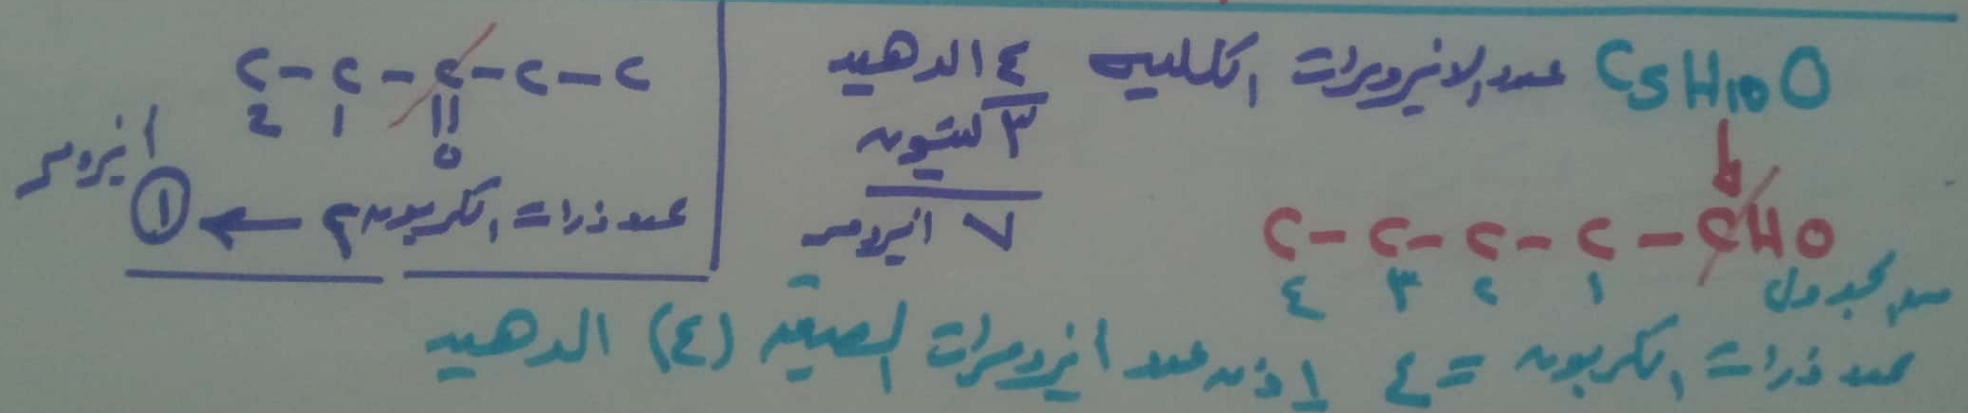 C5H10O عدد الايزومرات الكليه ٤ الدهيد
٣ كيتون
٧ ايزومر
C-C-C-C-CHO
٤ ٣ ٢ ١
من الجدول
عدد ذرات الكربون = ٤ إذن عدد ايزومرات الصيغة (٤) الدهيد
C-C-C-C-C
٢ ١ || 
O
عدد ذرات الكربون ٢ ← ① ايزومر